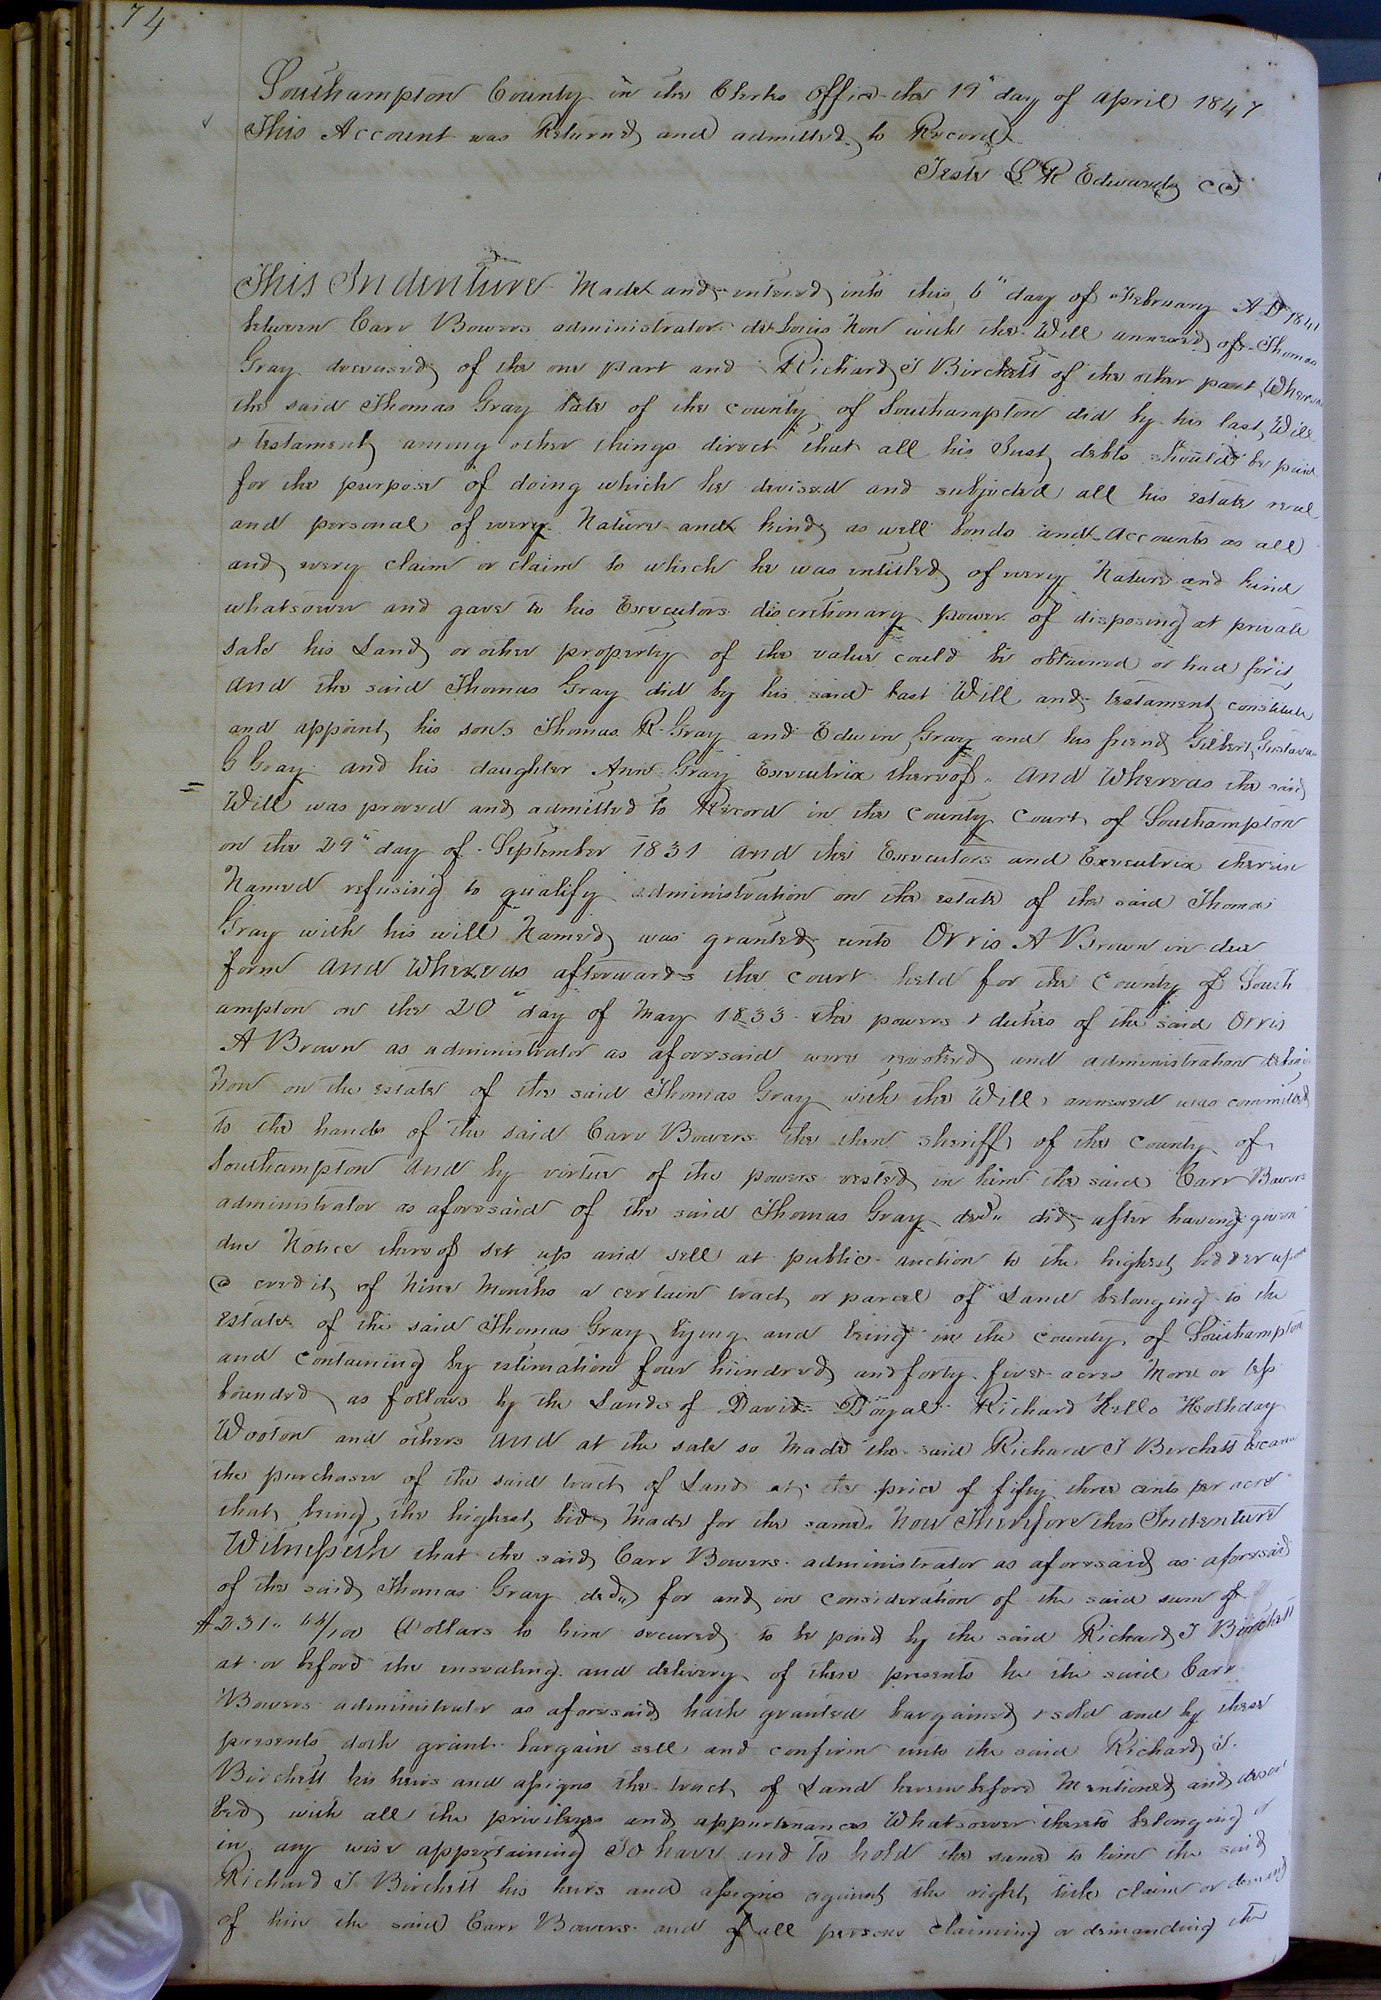 74
Southampton County in the Clerks Office the 19" day of April 1847
This Account was Returned and admitted to Record
Teste L R Edwards CC
This Indenture Made and entered into this 6" day of February A D 1841
between Carr Bowers administrator de bonis Non with the Will annexed of Thomas
Gray deceased of the one part and Richard T Birchett of the other part Whereas
the said Thomas Gray late of the county of Southampton did by his last Will
& testament among other things direct that all his Just debts should be paid
for the purpose of doing which he devised and subjected all his estate real
and personal of every Nature and kind as well bonds and Accounts as all
and every claim or claim to which he was intitled of every Nature and kind
whatsoever and gave to his Executors discretionary power of disposing at private
sale his Land or other property of the value could be obtained or had for it
and the said Thomas Gray did by his said last Will and testament constitute
and appoint his sons Thomas R Gray and Edwin Gray and his friend Gilbert Gustavus
G Gray and his daughter Ann Gray Executrix thereof. And Whereas the said
Will was proved and admitted to Record in the County Court of Southampton
on the 29" day of September 1831 and the Executors and Executrix therein
Named refusing to qualify administration on the estate of the said Thomas
Gray with his will Named was granted unto Orris A Brown in due
form and Whereas afterwards the court held for the County of South
ampton on the 20" day of May 1833 the powers & duties of the said Orris
A Brown as administrator as aforesaid were revoked and administration debonis
Non on the estate of the said Thomas Gray with the Will annexed was committed
to the hands of the said Carr Bowers the then sheriff of the County of
Southampton and by virtue of the powers vested in him the said Carr Bowers
administrator as aforesaid of the said Thomas Gray decd" did after having given
due Notice thereof set up and sell at public auction to the highest bidder upon
a credit of Nine Months a certain tract or parcel of Land belonging to the
estate of the said Thomas Gray lying and being in the county of Southampton
and containing by estimation four hundred and forty five acres More or less
bounded as follows by the Lands of David Doyal Richard Kello Holliday
Wooton and others and at the sale so Made the said Richard T Birchett became
the purchaser of the said tract of Land at the price of fifty three cents per acre
that being the highest bid Made for the same. Now Therefore this Indenture
Witnesseth that the said Carr Bowers administrator as aforesaid as aforesaid
of the said Thomas Gray decd" for and in consideration of the said sum of
$231" /100 Dollars to him secured to be paid by the said Richard T Birchett
at or before the ensealing and delivery of these presents he the said Carr
Bowers administrator as aforesaid hath granted bargained & sold and by these
presents doth grant bargain sell and confirm unto the said Richard T.
Birchett his heirs and assigns the tract of Land herein before Mentioned and descri
bed with all the privileges and appurtenances Whatsoever thereto belonging or
in any wise appertaining To have and To hold the same to him the said
Richard T Birchett his heirs and assigns against the right title claim or demand
of him the said Carr Bowers and of all persons claiming or demanding the